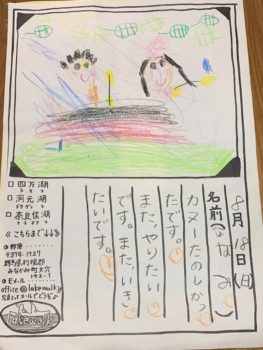 8月18日(日)
名前(みなみ)
カヌーたのしかっ
たです。
また、やりたい
です。また、いき
たいです。
□四万湖
□洞元湖
□奈良俣湖
≪こちらまで↓↓≫
●郵便
群馬県利根郡
みなかみ町大穴
●Eメール
office@lakewalk.jp